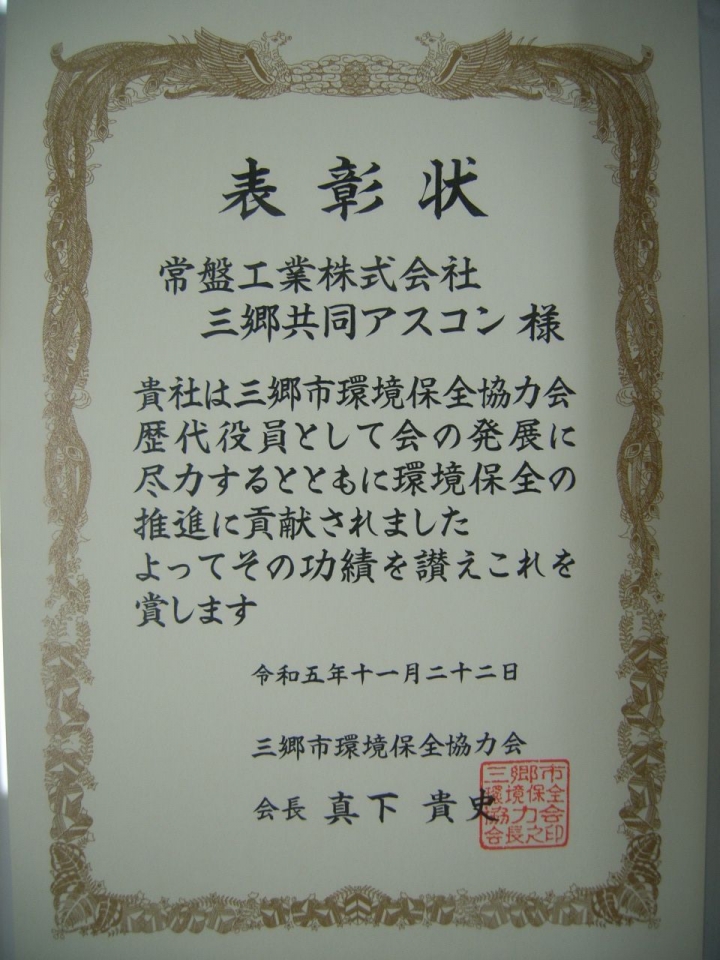 表彰状
常盤工業株式会社
三郷共同アスコン 様
貴社は三郷市環境保全協力会
歴代役員として会の発展に
尽力するとともに環境保全の
推進に貢献されました
よってその功績を讃えこれを
賞します
令和五年十一月二十二日
三郷市環境保全協力会
会長 真下 貴史
三郷市
環境保全
協力会
会長之印